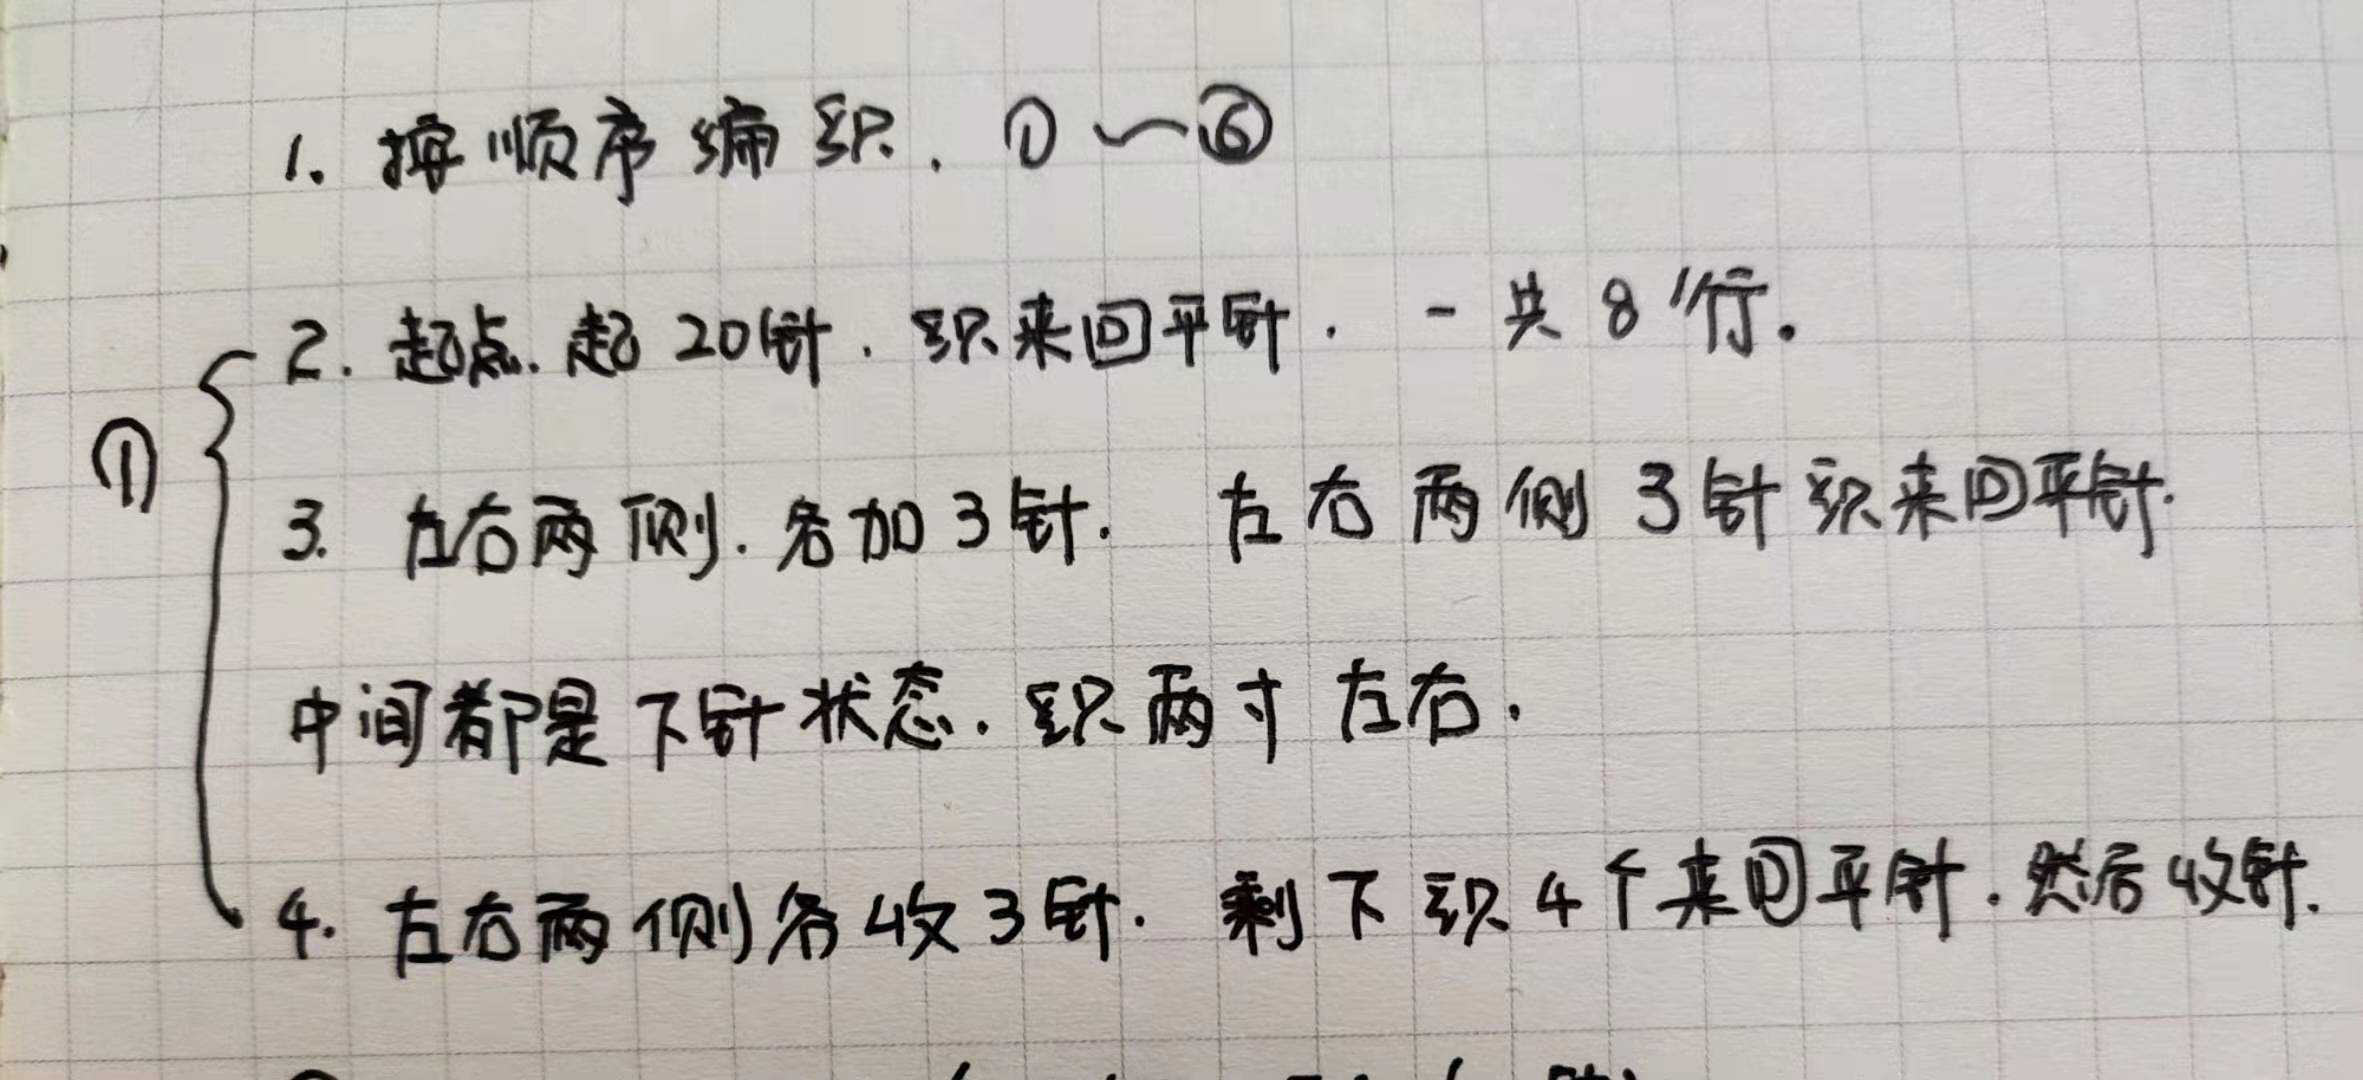 1. 按顺序编织. ①~⑥
2. 起点. 起20针. 织来回平针. 一共8行.
① 3. 左右两侧. 各加3针. 左右两侧3针织来回平针.
中间都是下针状态. 织两寸左右.
4. 左右两侧各收3针. 剩下织4个来回平针. 然后收针.